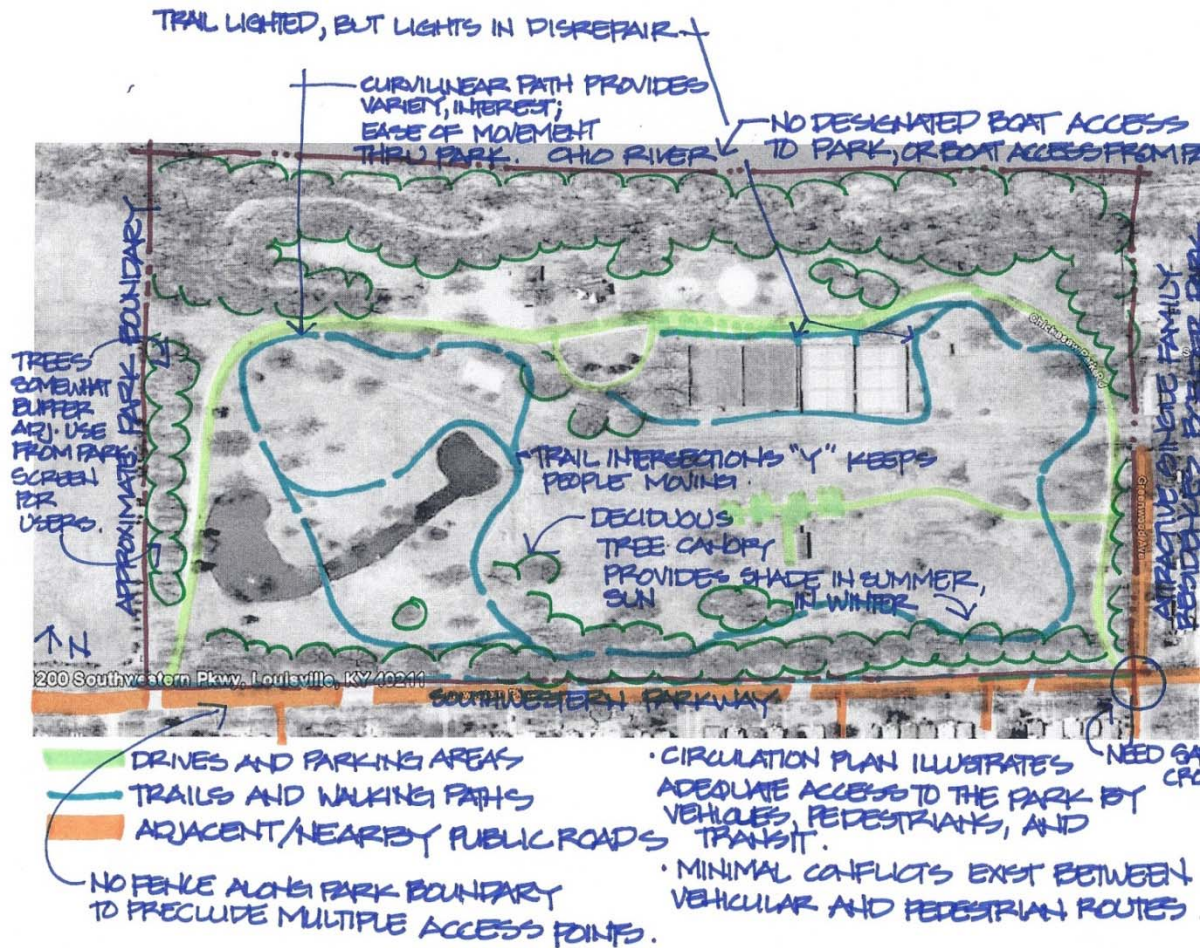 TRAIL LIGHTED, BUT LIGHTS IN DISREPAIR
CURVILINEAR PATH PROVIDES
VARIETY, INTEREST;
EASE OF MOVEMENT
THRU PARK.
OHIO RIVER
NO DESIGNATED BOAT ACCESS
TO PARK, OR BOAT ACCESS FROM
APPROXIMATE PARK BOUNDARY
TREES
SOMEWHAT
BUFFER
ADJ. USE
FROM PARK
SCREEN
FOR
USERS.
Chickasaw Park Rd
ATTRACTIVE SINGLE FAMILY
Greenwood Ave
TRAIL INTERSECTIONS "Y" KEEPS
PEOPLE MOVING.
DECIDUOUS
TREE CANOPY
PROVIDES SHADE IN SUMMER,
SUN IN WINTER
N
200 Southwestern Pkwy, Louisville, KY 40211
SOUTHWESTERN PARKWAY
DRIVES AND PARKING AREAS
TRAILS AND WALKING PATHS
ADJACENT/NEARBY PUBLIC ROADS
NO FENCE ALONG PARK BOUNDARY
TO PRECLUDE MULTIPLE ACCESS POINTS.
NEED
· CIRCULATION PLAN ILLUSTRATES
ADEQUATE ACCESS TO THE PARK BY
VEHICLES, PEDESTRIANS, AND
TRANSIT.
· MINIMAL CONFLICTS EXIST BETWEEN
VEHICULAR AND PEDESTRIAN ROUTES.